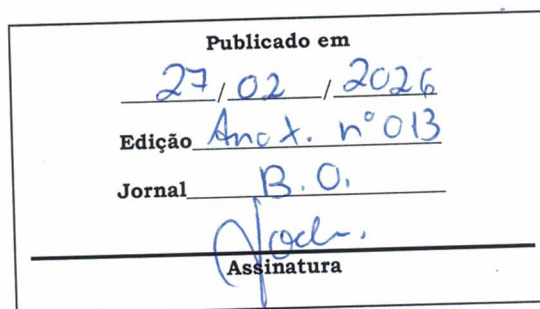 Publicado em
27/02/2026
Edição Ano X. nº 013
Jornal B.O.
Assinatura